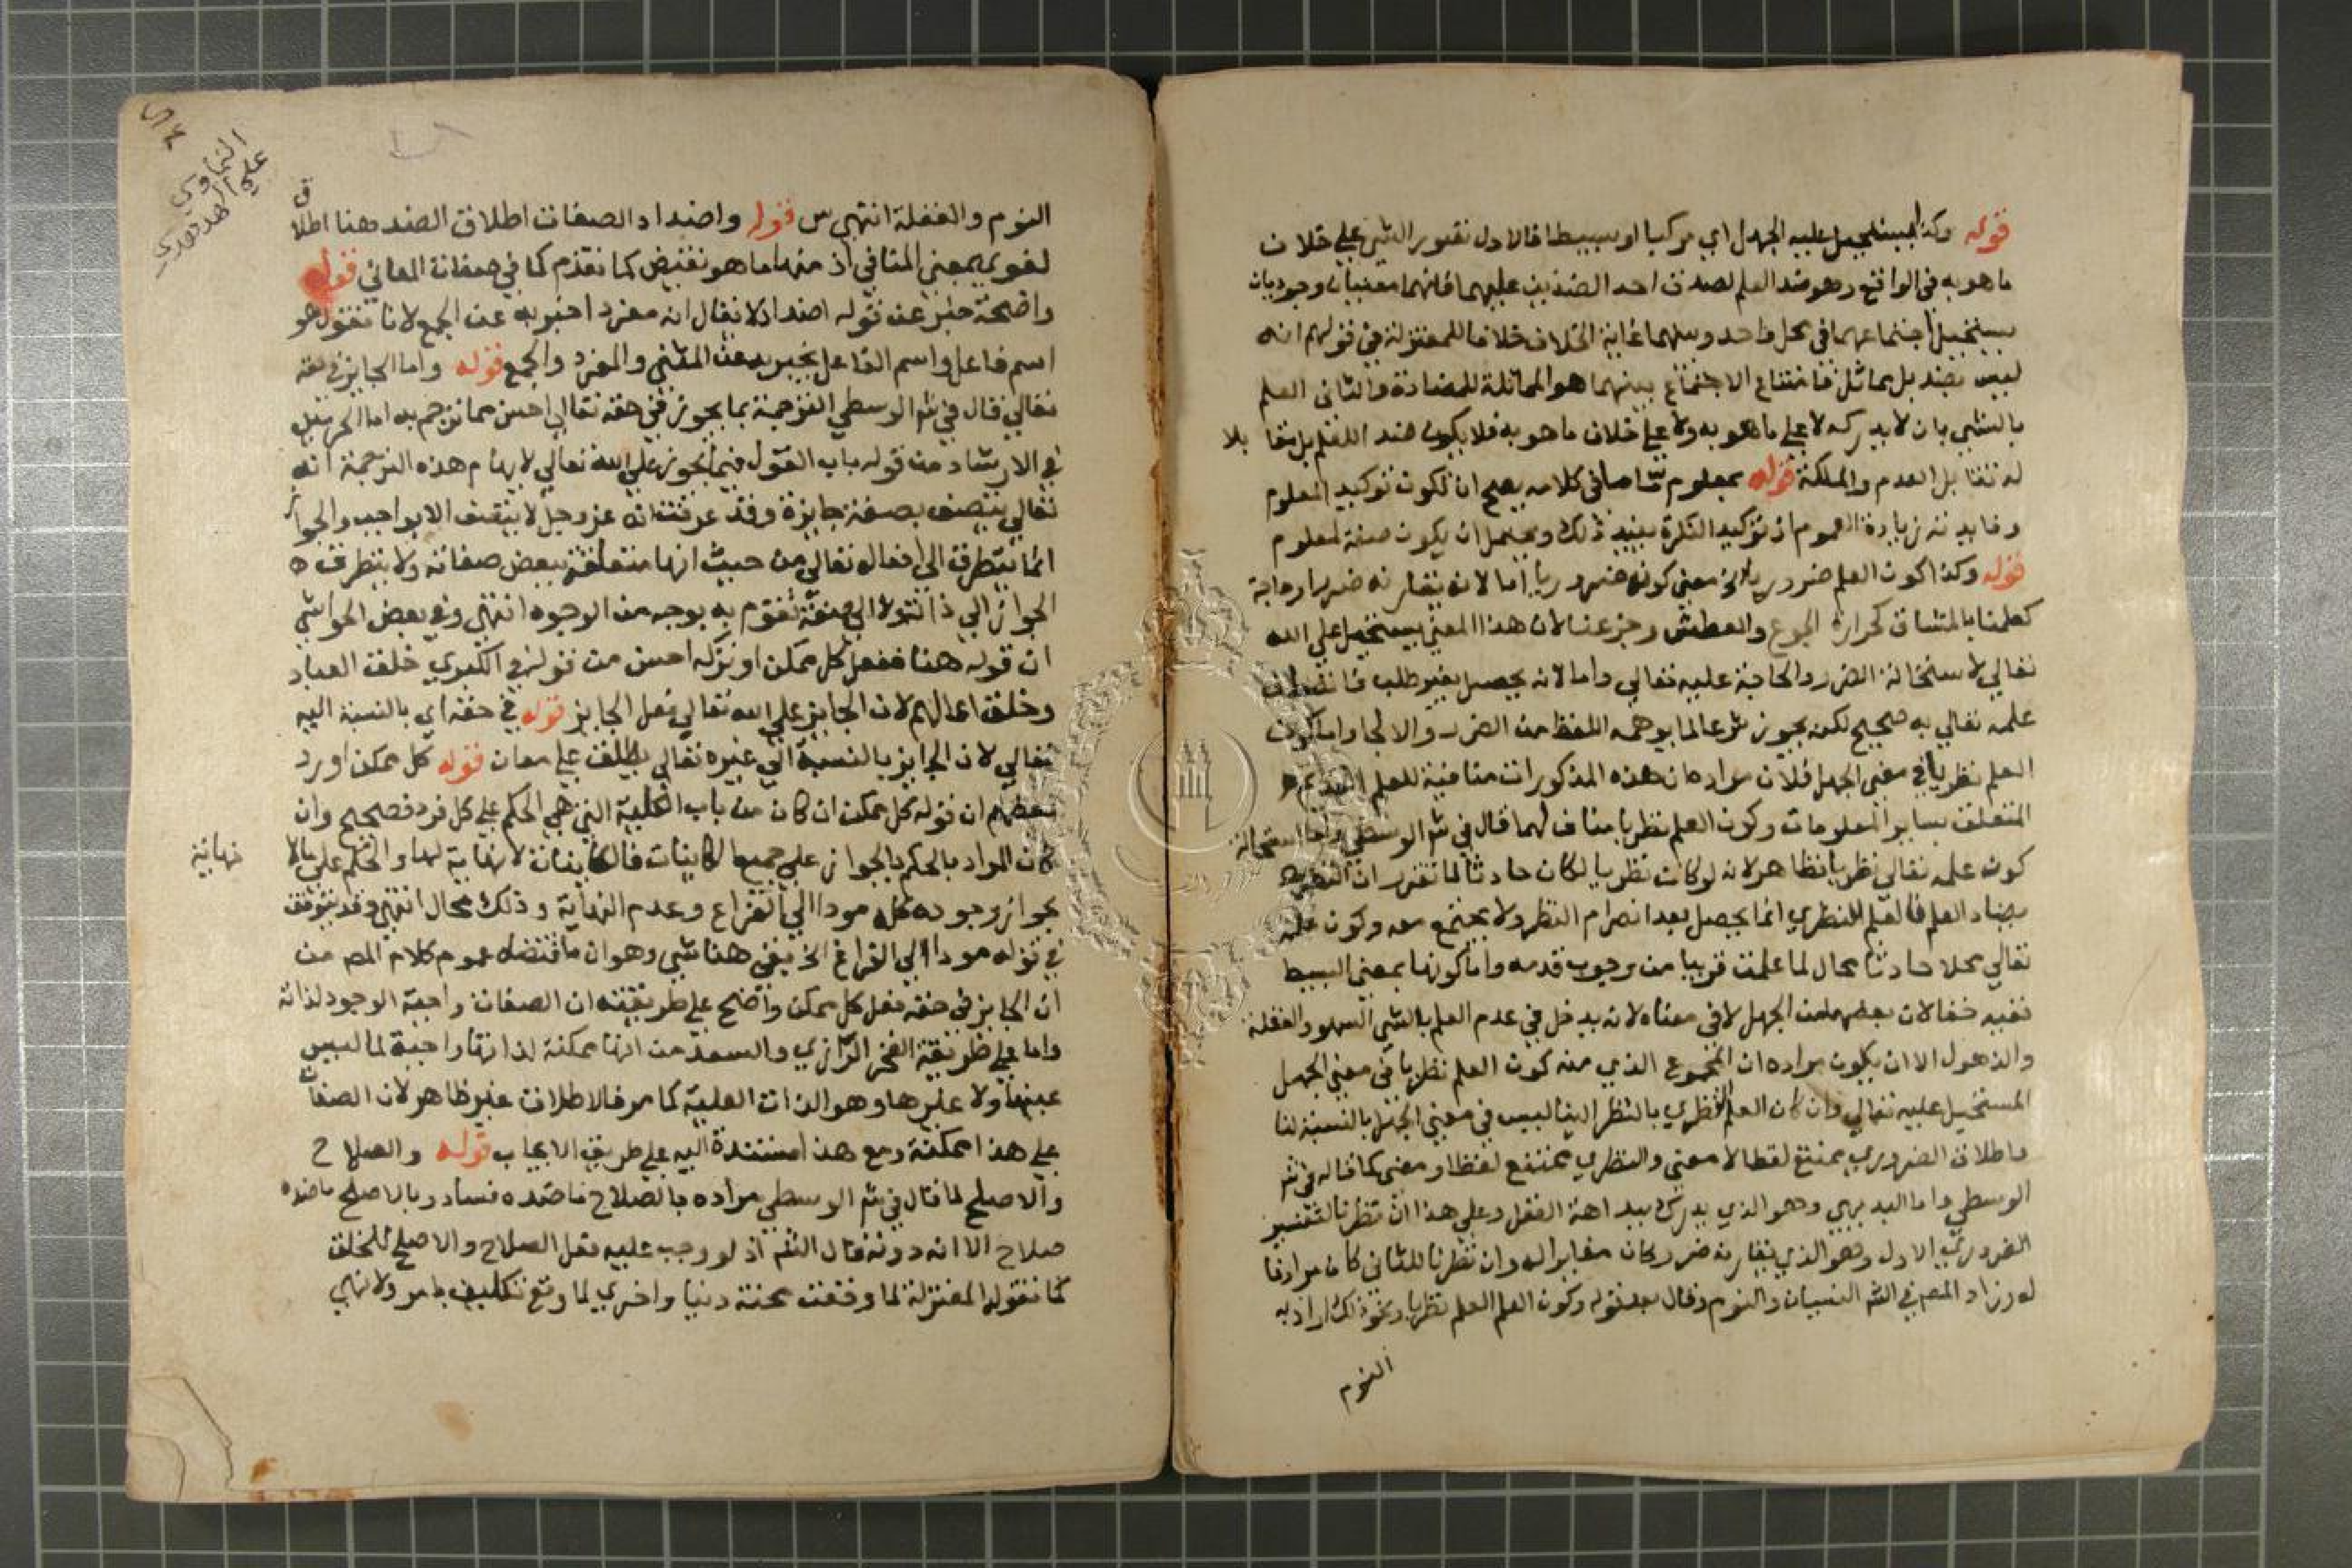 قوله وكذا يستحيل عليه الجهل اي مركبا او بسيطا فالاول تصور الشي علي خلاف
ما هو به في الواقع وهو ضد العلم لصدق احد الضدين عليهما فانهما معنيان وجوديان
يستحيل اجتماعهما في محل واحد وبينهما غاية الخلاف خلافا للمعتزلة في قولهم انه
ليس بضد بل مماثل فامتناع الاجتماع بينهما هو المماثلة للمضادة والثاني العلم
بالشي بان لا يدركه لا علي ما هو به ولا علي خلاف ما هو به فلا يكون ضد اللعلم بل مقا بلا
له تقابل العدم والملكة قوله بمعلوم ما ما في كلامه يصح ان تكون توكيد المعلوم
وفايدته زيادة العموم اذ توكيد النكرة يفيد ذلك ويحتمل ان يكون صفة لمعلوم
قوله وكذا كون العلم ضروريا الخ معني كونه ضروريا اما لانه يقارنه ضرر او حاجة
كعلمنا بالمشاق كحرارة الجوع والعطش وجزعنا لان هذا المعني يستحيل علي الله
تعالي لاستحالة الضرر والحاجة عليه تعالي واما لانه يحصل بغير طلب فاتصاف
علمه تعالي به صحيح لكن يجوز شرعا لما يوهمه اللفظ من الضرر والالجا واما كون
العلم نظريا في معني الجهل فلان مراده ان هذه المذكورات منافية للعلم القديم
المتعلق بساير المعلومات وكون العلم نظريا مناف لهما قال في شر الوسطي واما استحالة
كون علمه تعالي نظريا فظاهر لانه لو كان نظريا لكان حادثا لما تقرر ان النظر
يضاد العلم فالعلم النظري انما يحصل بعد انصرام النظر ولا يجتمع معه وكون علمه
تعالي محلا حادثا محال لما علمت قريبا من وجوب قدمه واما كونها بمعني البسيط
ففيه خفا لان بعضها من الجهل لا في معناه لانه يدخل في عدم العلم بالشي السهو والغفلة
والذهول الا ان يكون مراده ان المجموع الذي منه كون العلم نظريا في معني الجهل
المستحيل عليه تعالي وان كان العلم النظري بالنظر الينا ليس في معني الجهل بالنسبة لنا
واطلاق الضروري ممتنع لفظا لا معني والنظري ممتنع لفظا ومعني كما قاله في شر
الوسطي واما البديهي وهو الذي يدرك ببداهة العقل وعلي هذا ان نظرنا لتفسير
الضروري الاول وهو الذي يقارنه ضرر كان مغاير اله وان نظرنا للثاني كان مرادفا
له وزاد المص في الش النسيان والنوم وقال بعد قوله وكون العلم العلم نظريا ونحو ذلك اراد به
النوم
التماوي
علي الهدهدي
النوم والغفلة انتهي س قوله واضداد الصفات اطلاق الضد هنا اطلاق
لغوي بمعني المنافي اذ منها ما هو نقيض كما تقدم كما في صفات المعاني قوله
واضحة خبر عن قوله اضداد لا يقال انه مفرد اخبر به عن الجمع لانا نقول هو
اسم فاعل واسم الفاعل يخبر به عن المثني والمفرد والجمع قوله واما الجايز في حقه
تعالي قال في شر الوسطي الترجمة بما يجوز في حقه تعالي احسن مما ترجم به امام الحرمين
في الارشاد من قوله باب القول فيما يجوز علي الله تعالي لايهام هذه الترجمة انه
تعالي يتصف بصفة جايزة وقد عرفت انه عز وجل لا يتصف الا بواجب والجواز
انما يتطرق الي افعاله تعالي من حيث انها متعلقة ببعض صفاته ولا يتطرق
الجواز الي ذاته ولا الي صفة تقوم به بوجه من الوجوه انتهي وفي بعض الحواشي
ان قوله هنا ففعل كل ممكن او تركه احسن من قوله في الكبري خلق العباد
وخلق اعمالهم لان الجايز علي الله تعالي فعل الجايز قوله في حقه اي بالنسبة اليه
تعالي لان الجايز بالنسبة الي غيره تعالي يطلق علي معان قوله كل ممكن اورد
بعضهم ان قوله كل ممكن ان كان من باب الكلية التي هي الحكم علي كل فرد فصحيح وان
كان المراد بالحكم بالجواز علي جميع الكاينات فالكاينات لا نهاية لها والحكم علي ما لا نهاية
بجواز وجوده كل مودا الي الفراغ وعدم النهاية وذلك محال انتهي وقد يتوقف
في قوله مودا الي الفراغ الخ بقي هنا شي وهو ان ما اقتضاه عموم كلام المص من
ان الجايز في حقه فعل كل ممكن واضح علي طريقته ان الصفات واجبة الوجود لذاته
واما علي طريقة الفخر الرازي والسعد من انها ممكنة لذاتها واجبة لما ليس
عينها ولا غيرها وهو الذات العلية كما مر فالاطلاق غير ظاهر لان الصفات
علي هذا ممكنة ومع هذا مستندة اليه علي طريق الايجاب قوله والصلاح
والاصلح لما قال في شر الوسطي مراده بالصلاح ما ضده فساد وبالاصلح ما ضده
صلاح الا انه دونه قال الش اذ لو وجب عليه فعل الصلاح والاصلح للخلق
كما تقوله المعتزلة لما وقعت محنة دنيا واخري لما وقع تكليف بامر ولا نهي